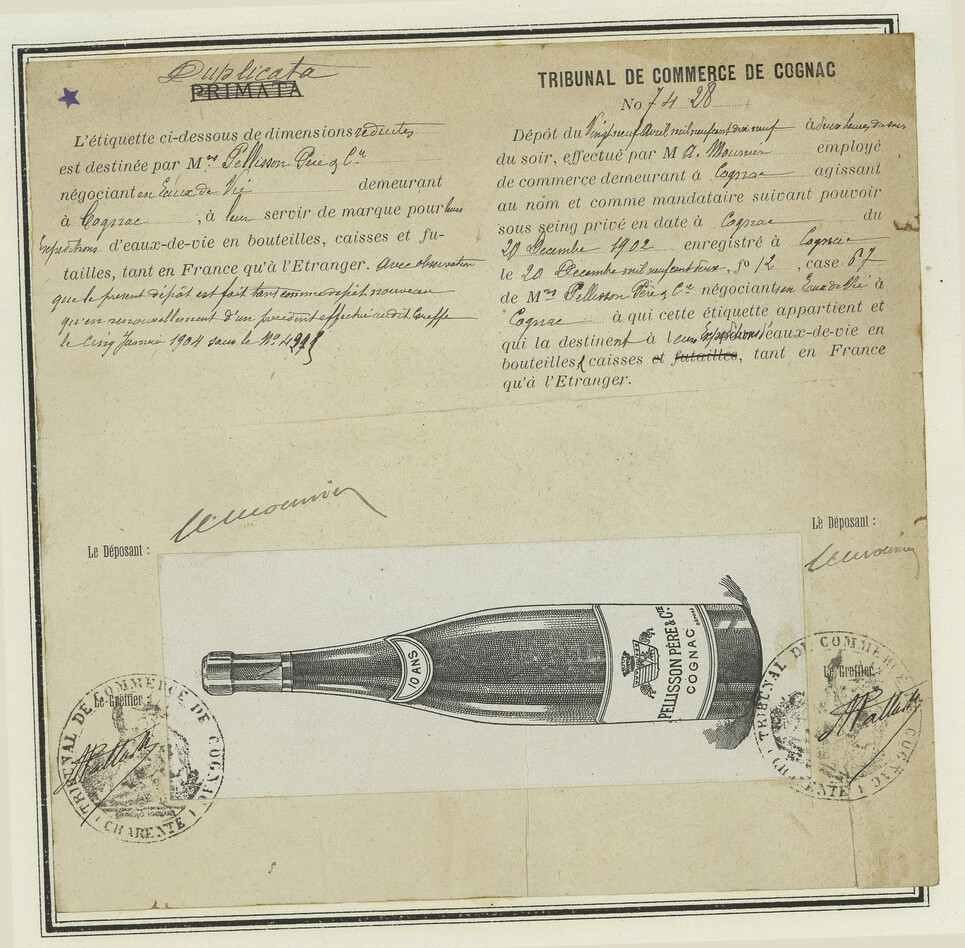 Duplicata
PRIMATA
L'étiquette ci-dessous de dimensions réduites
est destinée par Mrs Pellisson Père & Cie
négociants en Eaux de Vie demeurant
à Cognac, à leur servir de marque pour leurs
Expéditions d'eaux-de-vie en bouteilles, caisses et fu-
tailles, tant en France qu'à l'Etranger. Avec observation
que le présent dépôt est fait tant comme dépôt nouveau
qu'en renouvellement d'un précédent effectué audit Greffe
le Cinq Janvier 1904 sous le No
TRIBUNAL DE COMMERCE DE COGNAC
No 74 28
Dépôt du Vingt neuf Avril mil neuf cent dix neuf à deux heures du soir
du soir, effectué par M A. Mounier employé
de commerce demeurant à Cognac agissant
au nom et comme mandataire suivant pouvoir
sous seing privé en date à Cognac du
20 Décembre 1902 enregistré à Cognac
le 20 Décembre mil neuf cent deux, fo 12, case 67
de Mrs Pellisson Père & Cie négociants en Eaux de Vie à
Cognac à qui cette étiquette appartient et
qui la destinent à leurs Expéditions d'eaux-de-vie en
bouteilles, caisses et futailles, tant en France
qu'à l'Etranger.
Le Déposant :
Le Déposant :
10 ANS
PELLISSON PÈRE & CIE
COGNAC
Le Greffier :
TRIBUNAL DE COMMERCE DE COGNAC
(CHARENTE)
Le Greffier :
TRIBUNAL DE COMMERCE DE COGNAC
(CHARENTE)